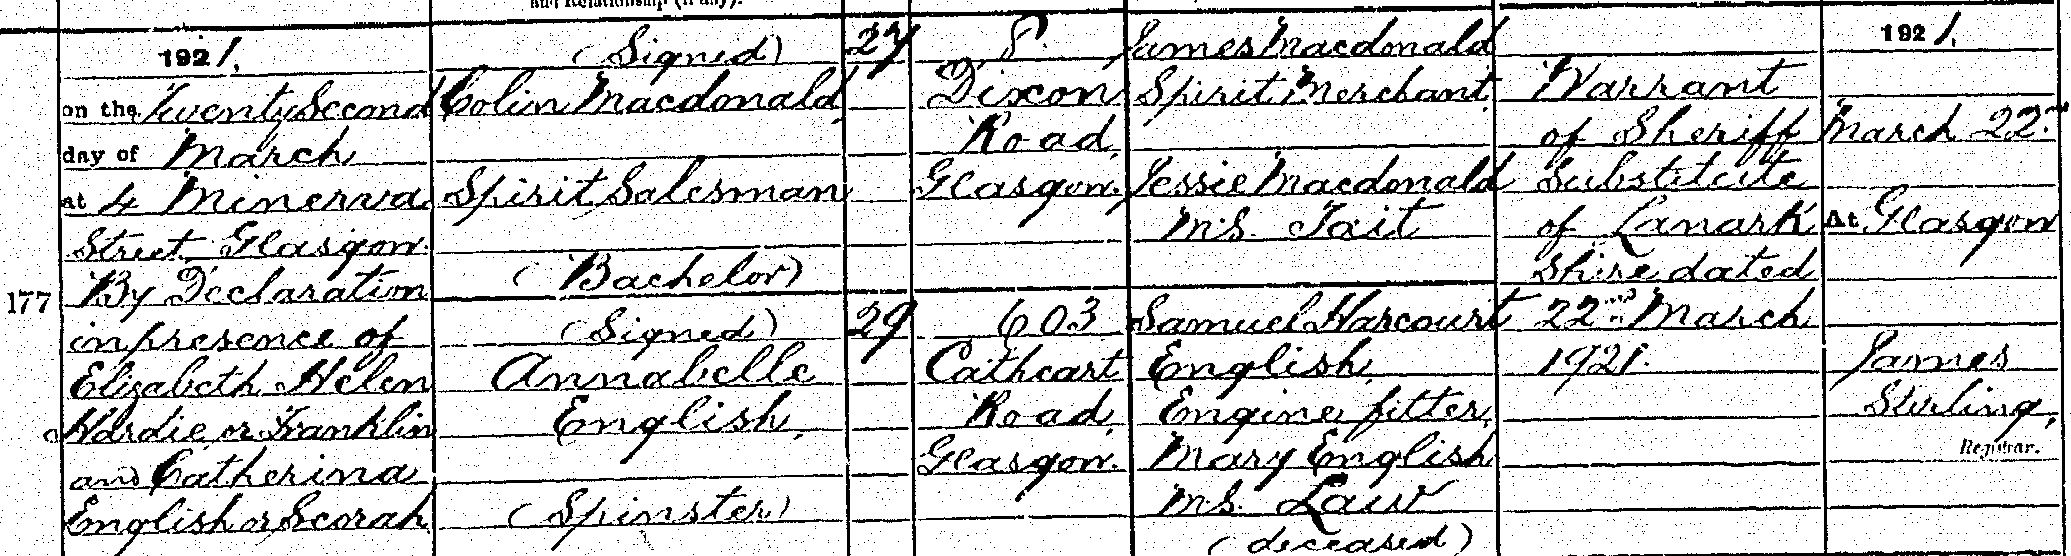 and Relationship (if any).
177
1921.
on the Twenty Second
day of March
at 4 Minerva
Street, Glasgow.
By Declaration
in presence of
Elizabeth Helen
Hardie or Franklin
and Catherina
English or Scorah
(Signed)
Colin Macdonald,
Spirit Salesman
(Bachelor)
(Signed)
Annabelle
English,
(Spinster)
27
29
8.
Dixon
Road,
Glasgow.
603
Cathcart
Road,
Glasgow.
James Macdonald
Spirit Merchant,
Jessie Macdonald
M.S. Tait
Samuel Harcourt
English,
Engine fitter,
Mary English
M.S. Law
(deceased)
Warrant
of Sheriff
Substitute
of Lanark
shire dated
22nd March
1921.
1921.
March 22nd
At Glasgow
James
Stirling,
Registrar.